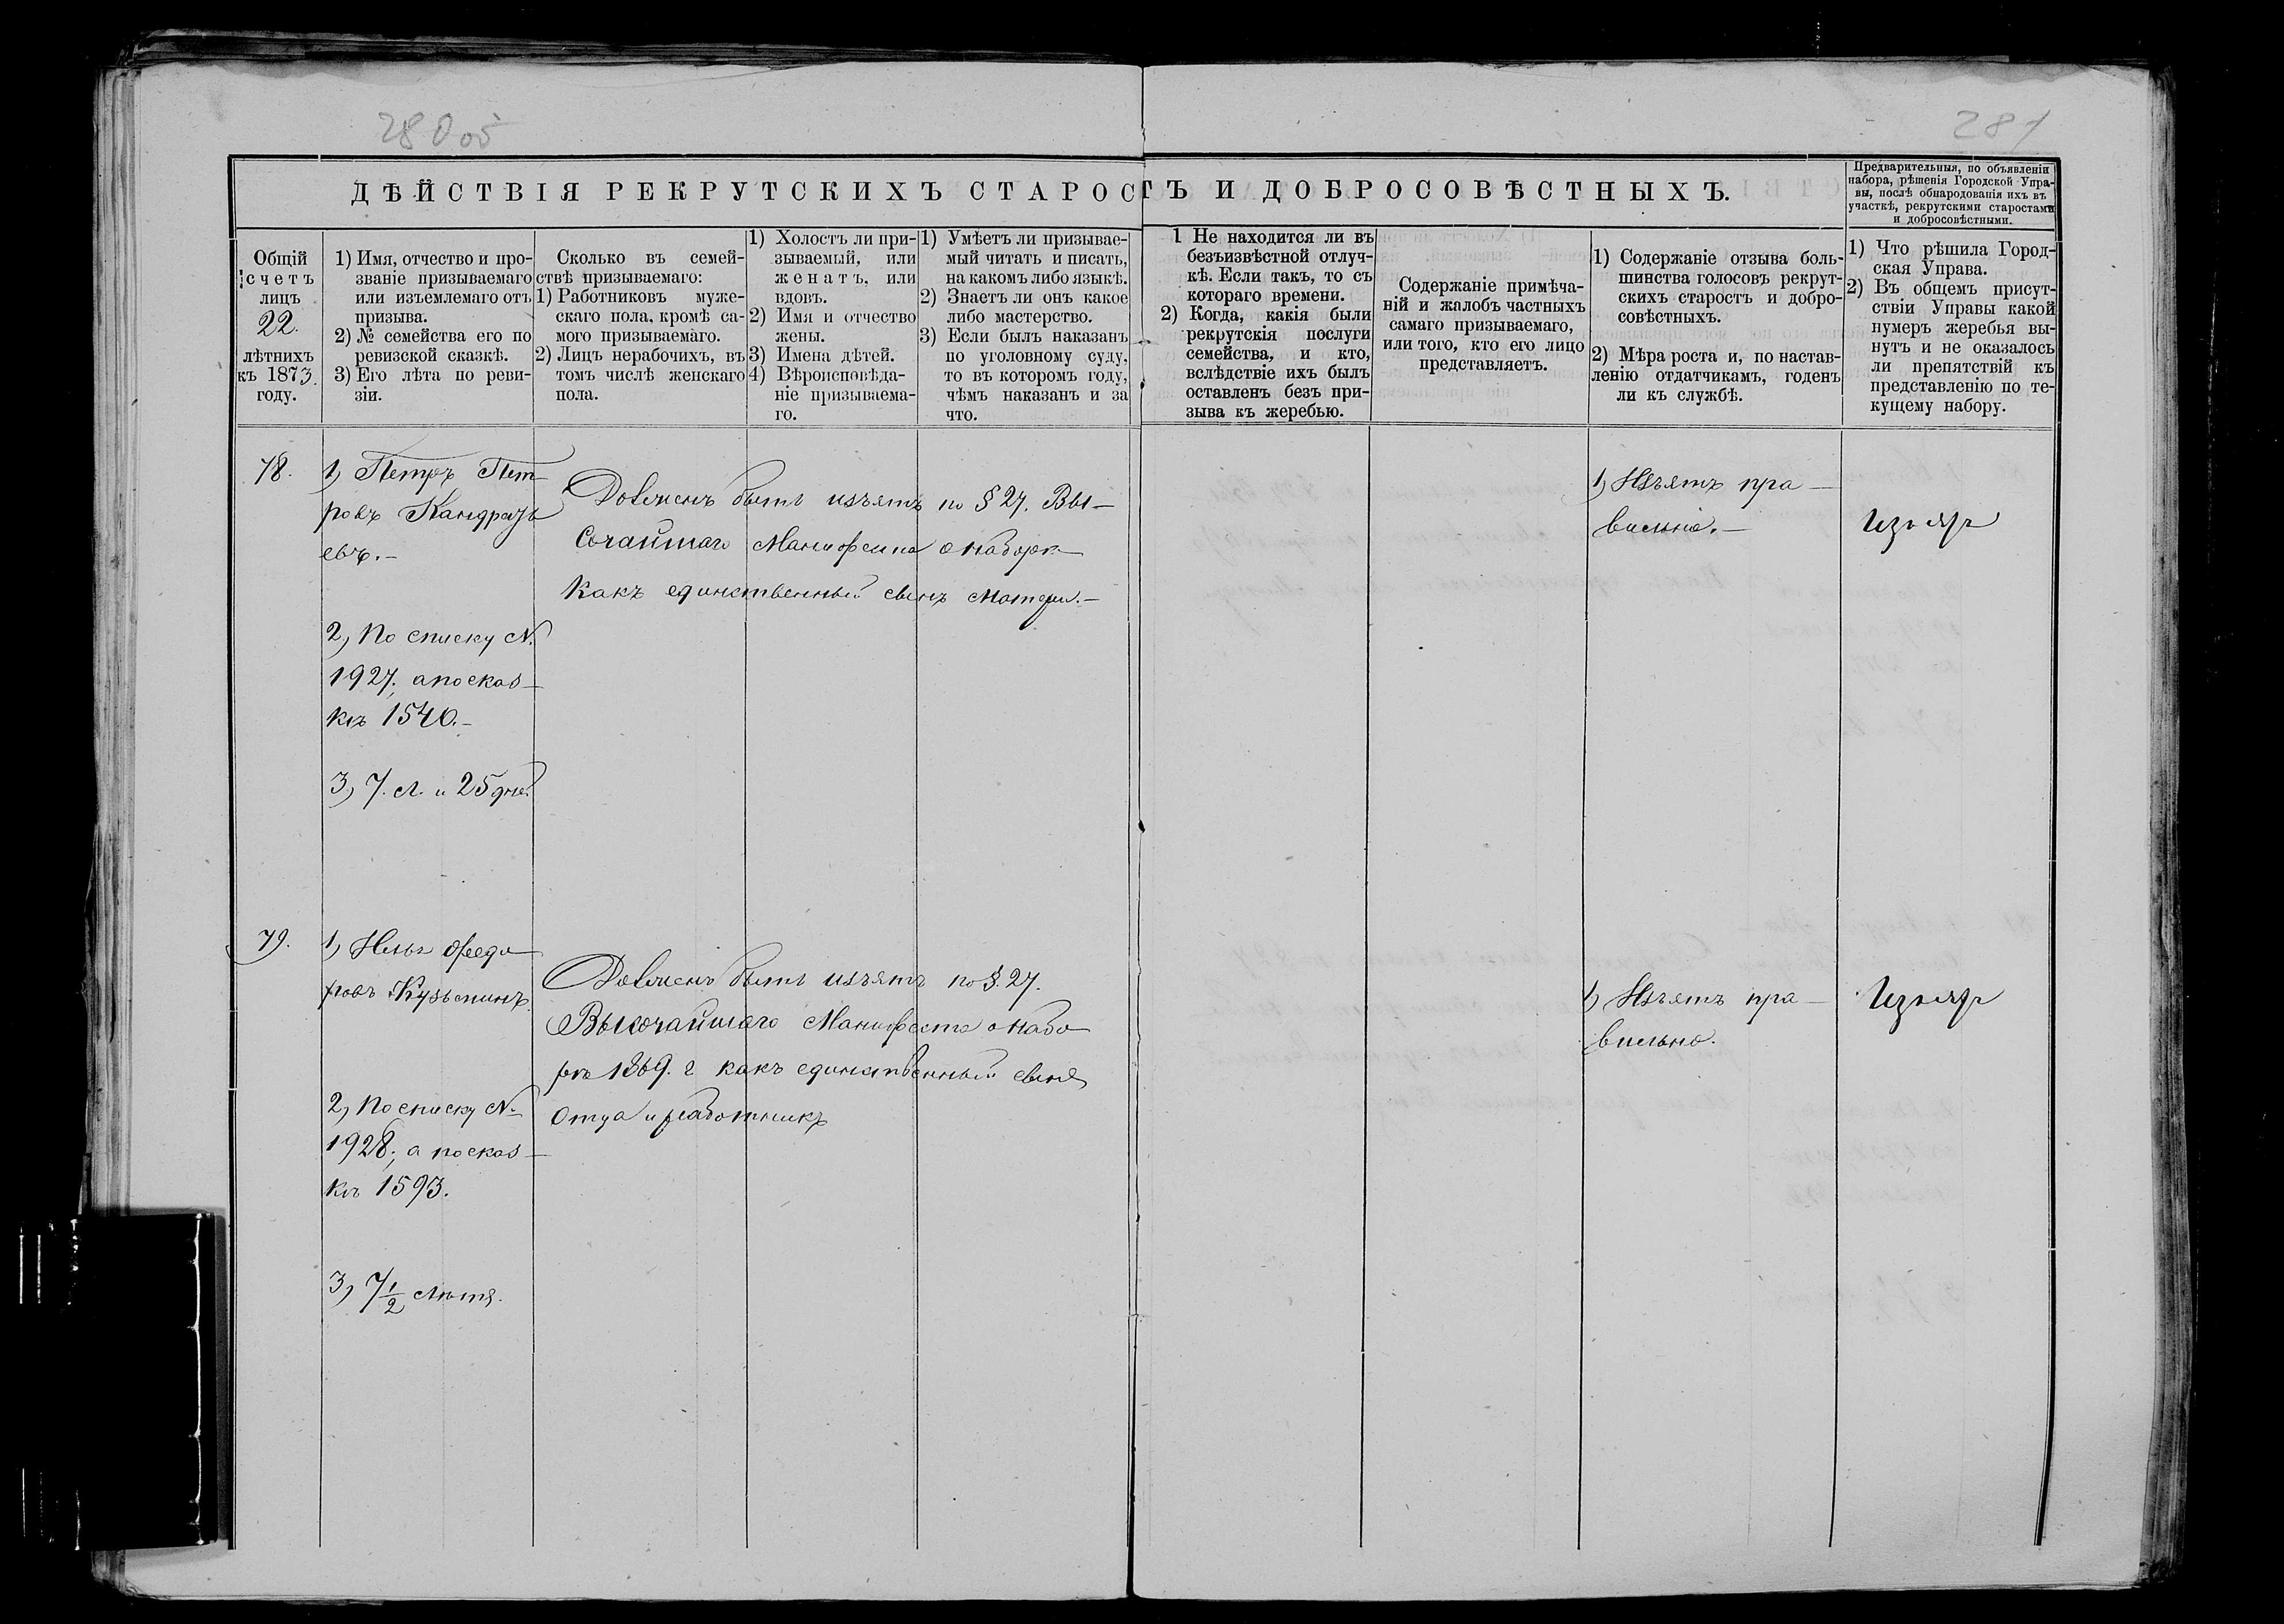 280 об
281
ДѢЙСТВІЯ РЕКРУТСКИХЪ СТАРОСТЪ И ДОБРОСОВѢСТНЫХЪ.
Предварительныя, по объявленіи
набора, рѣшенія Городской Упра-
вы, послѣ обнародованія ихъ въ
участкѣ, рекрутскими старостами
и добросовѣстными.
Общій
счетъ
лицъ
22.
лѣтнихъ
къ 1873.
году.
1) Имя, отчество и про-
званіе призываемаго
или изъемлемаго отъ
призыва.
2) № семейства его по
ревизской сказкѣ.
3) Его лѣта по реви-
зіи.
Сколько въ семей-
ствѣ призываемаго:
1) Работниковъ муже-
скаго пола, кромѣ са-
мого призываемаго.
2) Лицъ нерабочихъ, въ
томъ числѣ женскаго
пола.
1) Холостъ ли при-
зываемый, или
женатъ, или
вдовъ.
2) Имя и отчество
жены.
3) Имена дѣтей.
4) Вѣроисповѣда-
ніе призываема-
го.
1) Умѣетъ ли призывае-
мый читать и писать,
на какомъ либо языкѣ.
2) Знаетъ ли онъ какое
либо мастерство.
3) Если былъ наказанъ
по уголовному суду,
то въ которомъ году,
чѣмъ наказанъ и за
что.
1 Не находится ли въ
безъизвѣстной отлуч-
кѣ. Если такъ, то съ
котораго времени.
2) Когда, какія были
рекрутскія послуги
семейства, и кто,
вслѣдствіе ихъ былъ
оставленъ безъ при-
зыва къ жеребью.
Содержаніе примѣча-
ній и жалобъ частныхъ
самаго призываемаго,
или того, кто его лицо
представляетъ.
1) Содержаніе отзыва боль-
шинства голосовъ рекрут-
скихъ старостъ и добро-
совѣстныхъ.
2) Мѣра роста и, по настав-
ленію отдатчикамъ, годенъ
ли къ службѣ.
1) Что рѣшила Город-
ская Управа.
2) Въ общемъ присут-
ствіи Управы какой
нумеръ жеребья вы-
нутъ и не оказалось
ли препятствій къ
представленію по те-
кущему набору.
78.
1) Петръ Пет-
ровъ Кандратъ
евъ.–
2) По списку №
1927, а по сказ–
кѣ 1540.–
3) 7. л. и 25 дней
Долженъ быть изъятъ по § 27. Вы–
сочайшаго Манифеста о наборѣ
какъ единственный сынъ матери.–
1) Изъятъ пра–
вильно.–
Изъять
79.
1) Илья Федо
ровъ Кузьминъ.
2) По списку №
1928; а по сказ–
кѣ 1593.
3) 7½ лѣтъ.
Долженъ быть изъятъ по §. 27.
Высочайшаго Манифеста о набо
рѣ 1869. г какъ единственный сынъ
Отца и работникъ
1) Изъятъ пра–
вильно.
Изъять